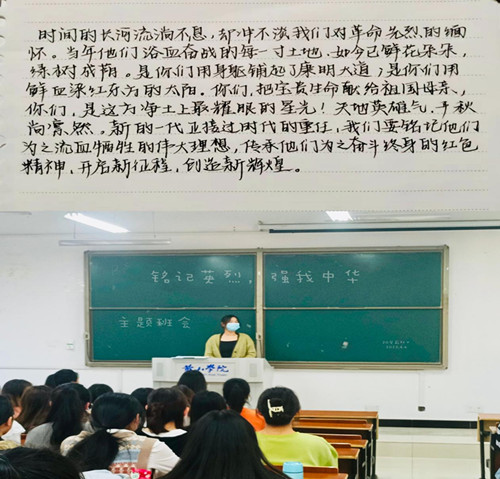 时间的长河流淌不息，却冲不淡我们对革命先烈的缅
怀。当年他们浴血奋战的每一寸土地，如今已鲜花朵朵，
绿树成荫。是你们用身躯铺起了康明大道；是你们用
鲜血染红东方的太阳。你们，把宝贵生命献给祖国母亲，
你们，是这方净土上最耀眼的星光！天地英雄气，千秋
尚凛然。新的一代正接过时代的重任，我们要铭记他们
为之流血牺牲的伟大理想，传承他们为之奋斗终身的红色
精神，开启新征程，创造新辉煌。
铭记英烈，强我中华
主题班会
学院